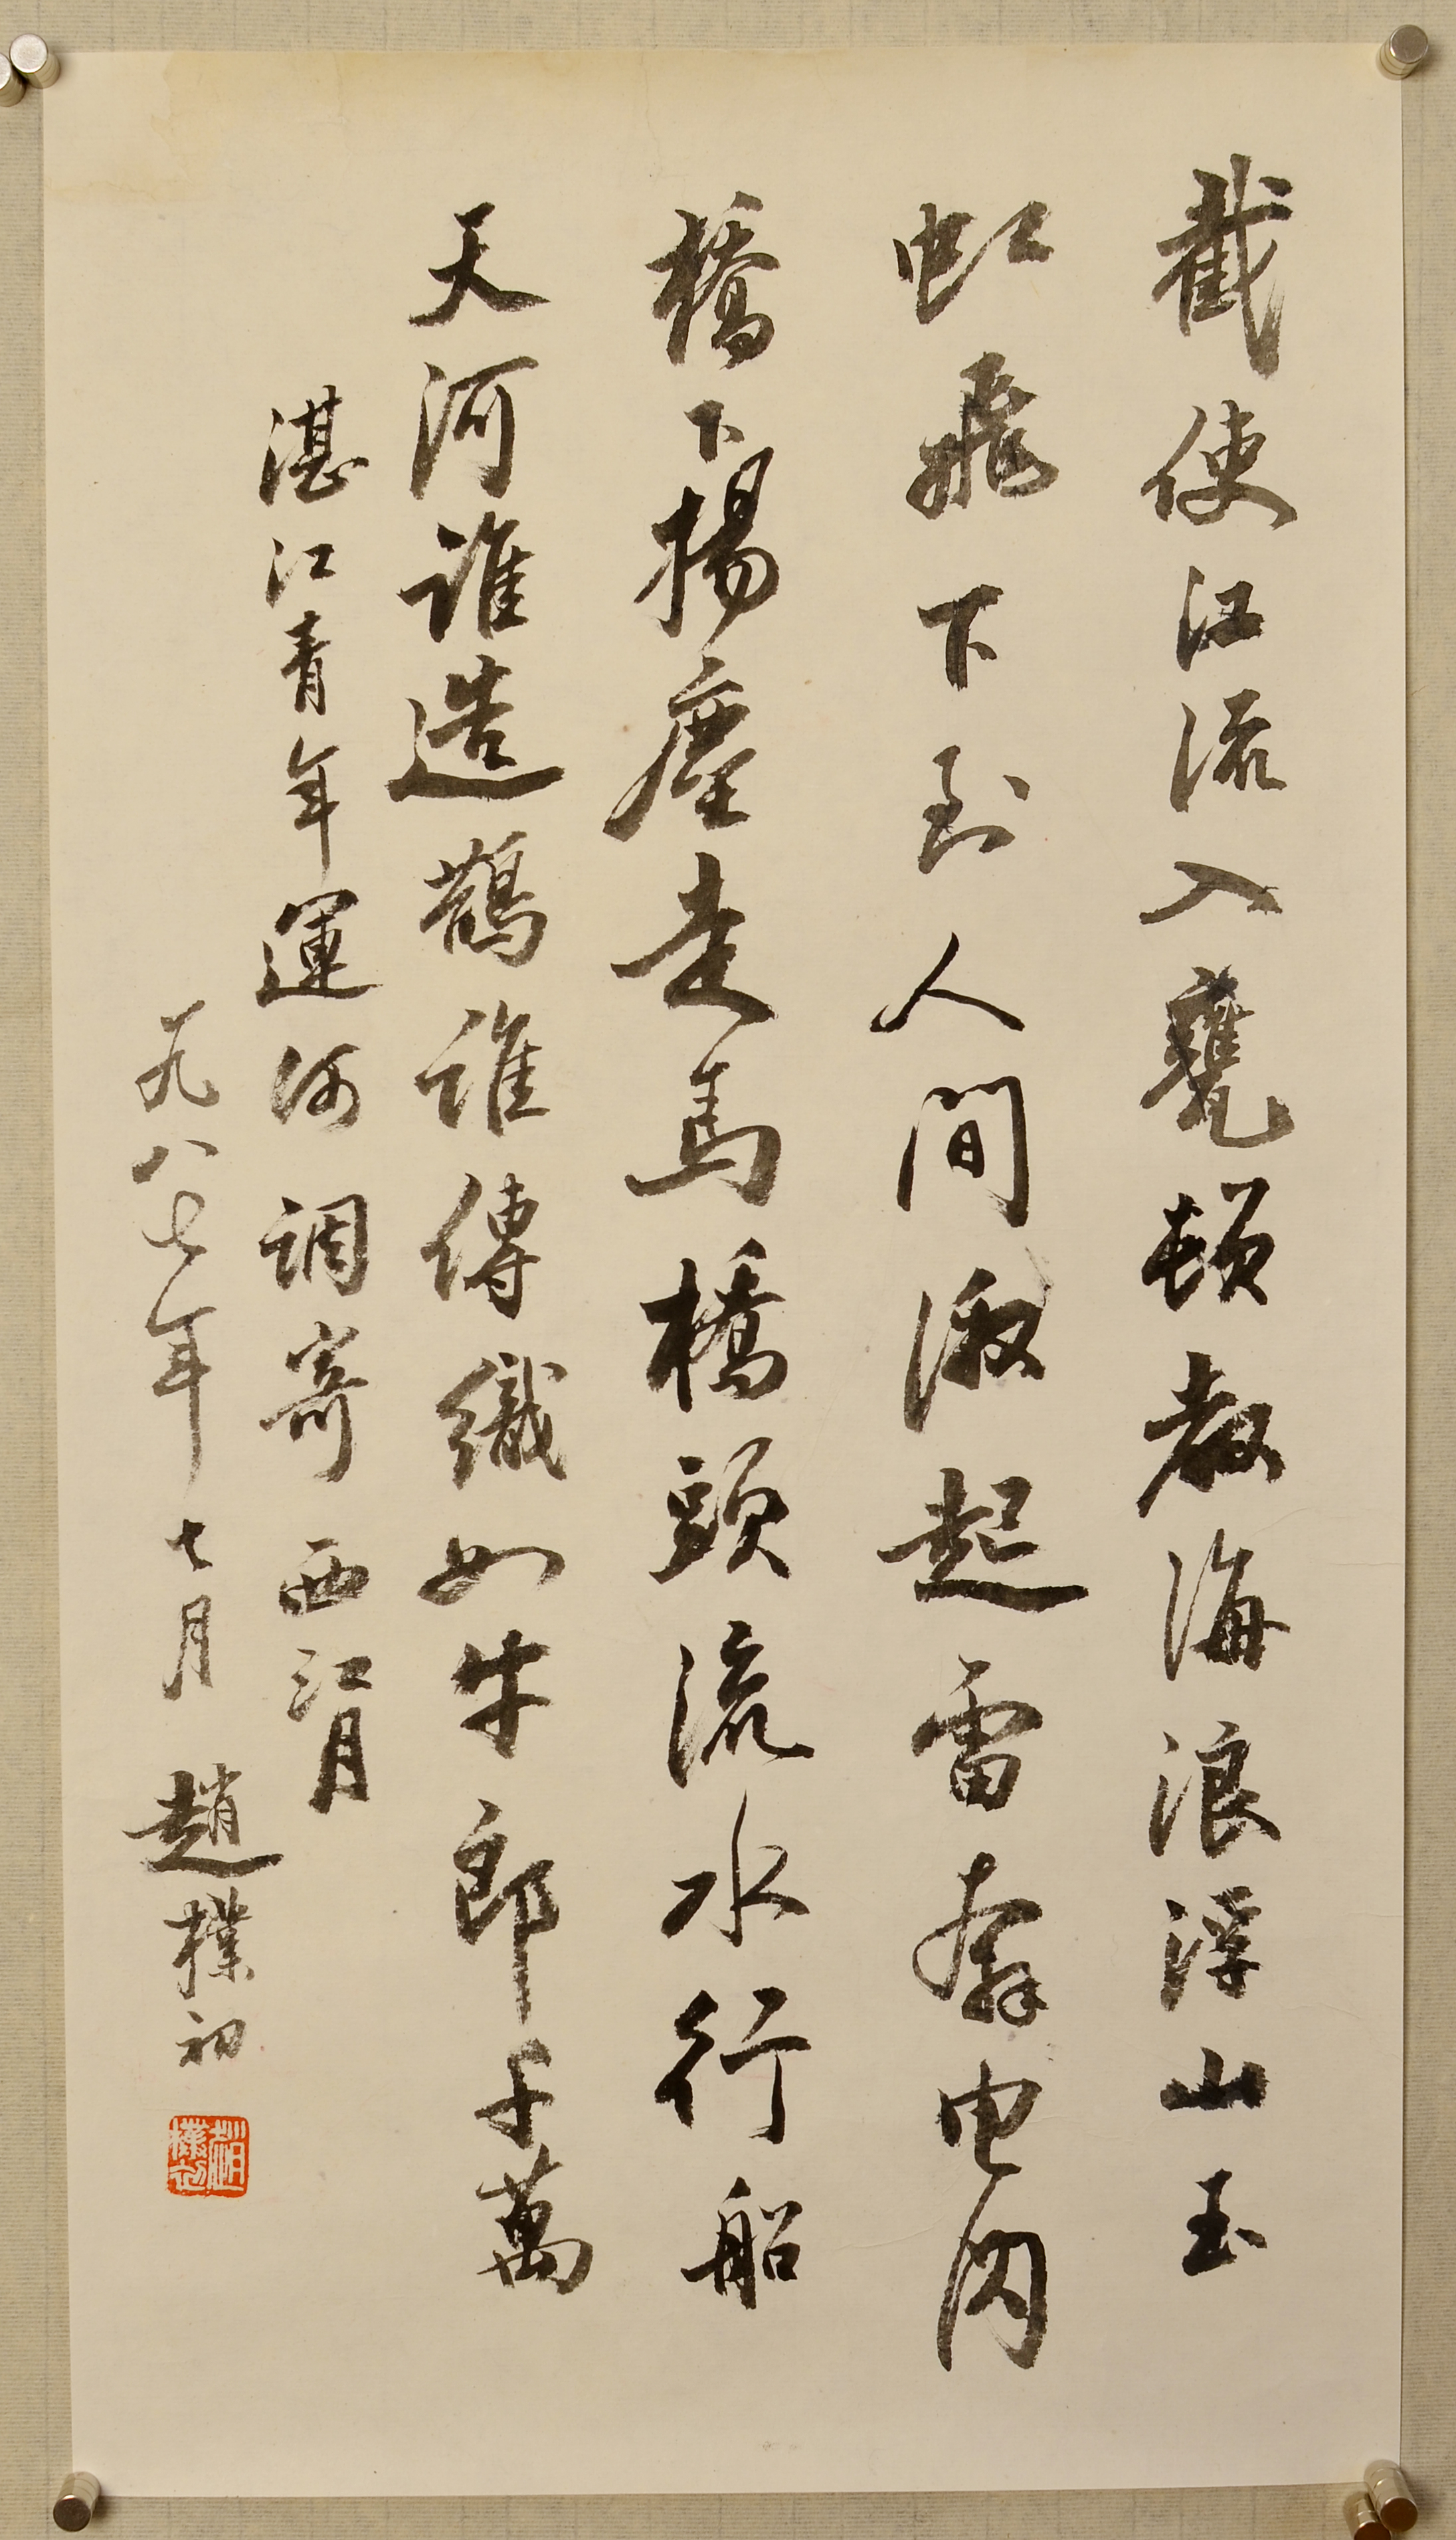 截使江流入甕頓教海浪浮山玉
虹飛下到人間激起雷奔电闪
橋下揚塵走馬橋頭流水行船
天河谁造鵲谁傳織女牛郎千萬
湛江青年運河调寄西江月
一九八七年七月趙樸初
趙樸初